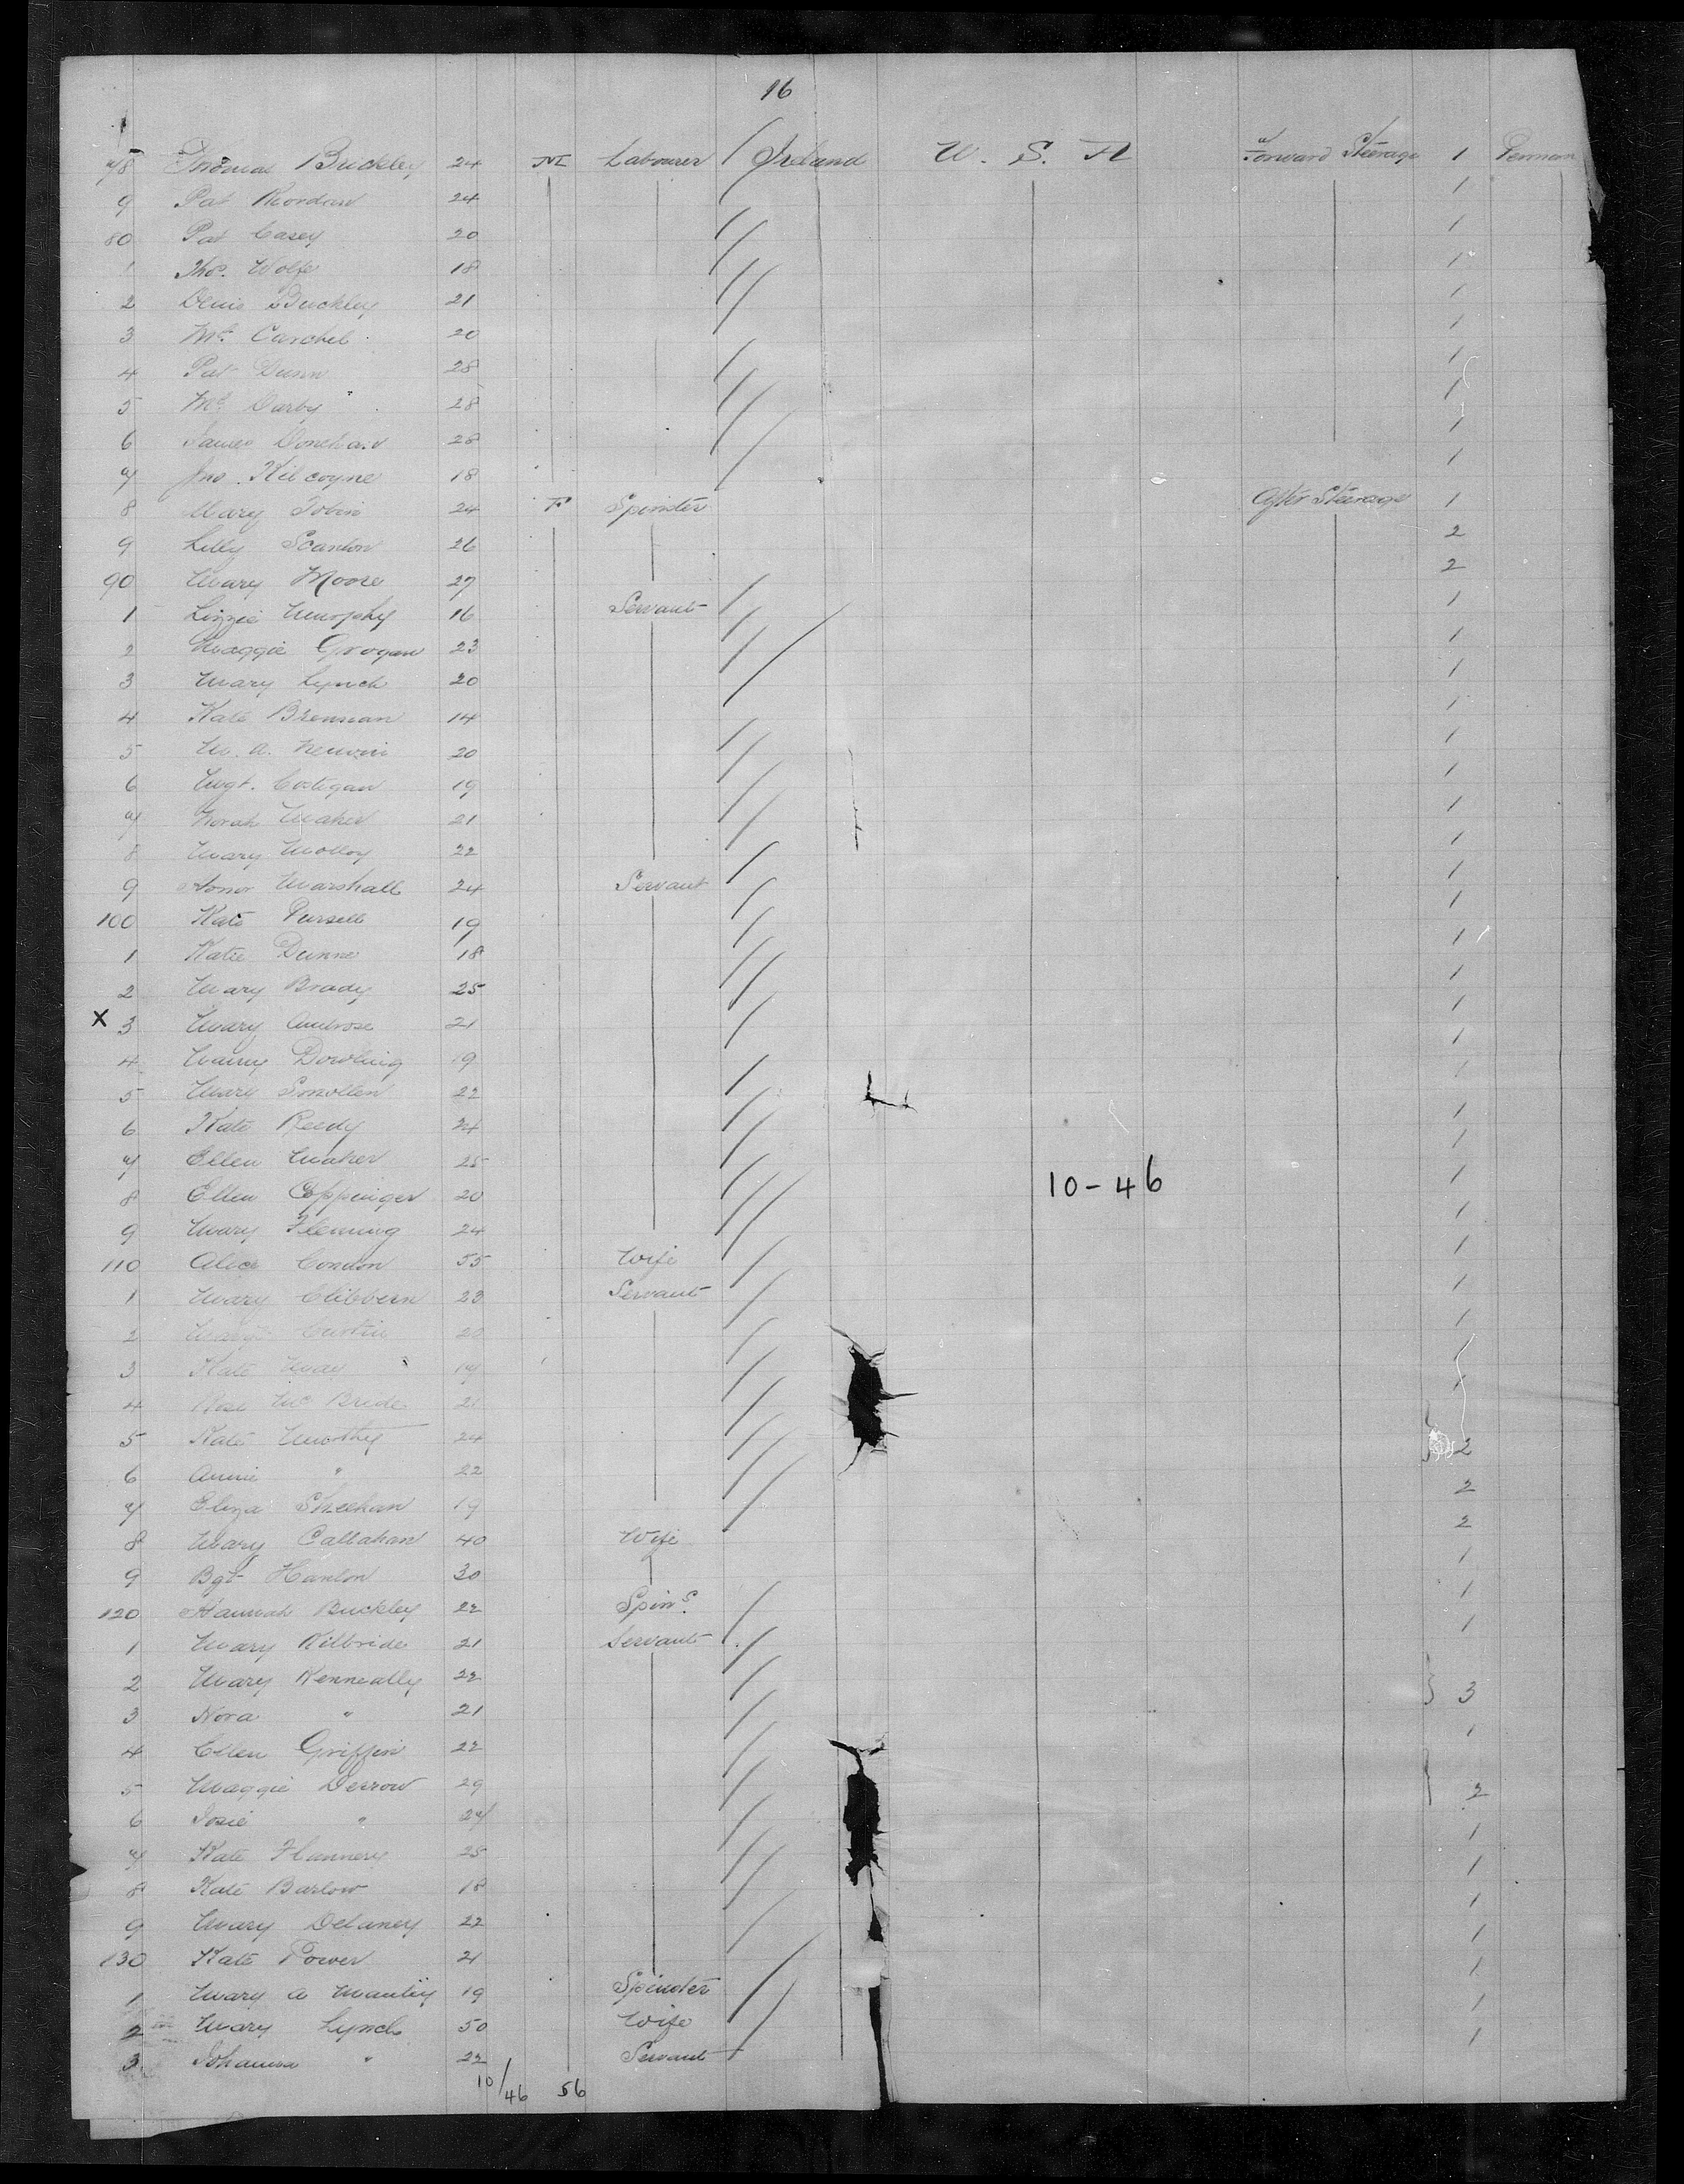 16
78 Thomas Buckley 24 M Labourer Ireland U. S. A Forward Steerage 1
9 Pat Riordan 24 1
80 Pat Casey 20 1
1 Thos. Wolfe 18 1
2 Denis Buckley 21 1
3 Mt. 20 1
4 Pat Dunn 28 1
5 Mt. Darby 28 1
6 James 28 1
7 Jno. Kilcoyne 18 1
8 Mary Tobin 24 F Spinster After Steerage 1
9 Lilly Scanlon 26 2
90 Mary Moore 27 2
1 Lizzie Murphy 16 Servant 1
2 Maggie Grogan 23 1
3 Mary Lynch 20 1
4 Kate Brennan 14 1
5 M. A. 20 1
6 Mgt. Costigan 19 1
7 Norah Maher 21 1
8 Mary Molloy 22 1
9 Honor Marshall 24 Servant 1
100 Kate Pursell 19 1
1 Katie Dunne 18 1
2 Mary Brady 25 1
X 3 Mary Ambrose 21 1
4 Dowling 19 1
5 Mary Smollen 22 1
6 Kate Reedy 24 1
7 Ellen Maher 25 1
8 Ellen Coppinger 20 10-46 1
9 Mary Fleming 24 1
110 Alice Condon 55 Wife 1
1 Mary Clibbern 23 Servant 1
2 Curtin 1
3 Kate May 17 1
4 Rose McBride 21
5 Kate 24 2
6 Annie " 22 2
7 Eliza Sheehan 19
8 Mary Callahan 40 Wife 2
9 Bgt Hanlon 30 1
120 Hannah Buckley 22 Spins. 1
1 Mary Kilbride 21 Servant 1
2 Mary Kenneally 22
3 Nora " 21 } 3
4 Ellen Griffin 22 1
5 Maggie Derrow 29
6 Josie " 27 } 2
7 Kate Flannery 25 1
8 Kate Barlow 18 1
9 Mary Delaney 22 1
130 Kate Power 21 1
1 Mary A Manley 19 Spinster 1
2 Mary Lynch 50 Wife 1
3 Johanna " 22 Servant 1
10/46 56